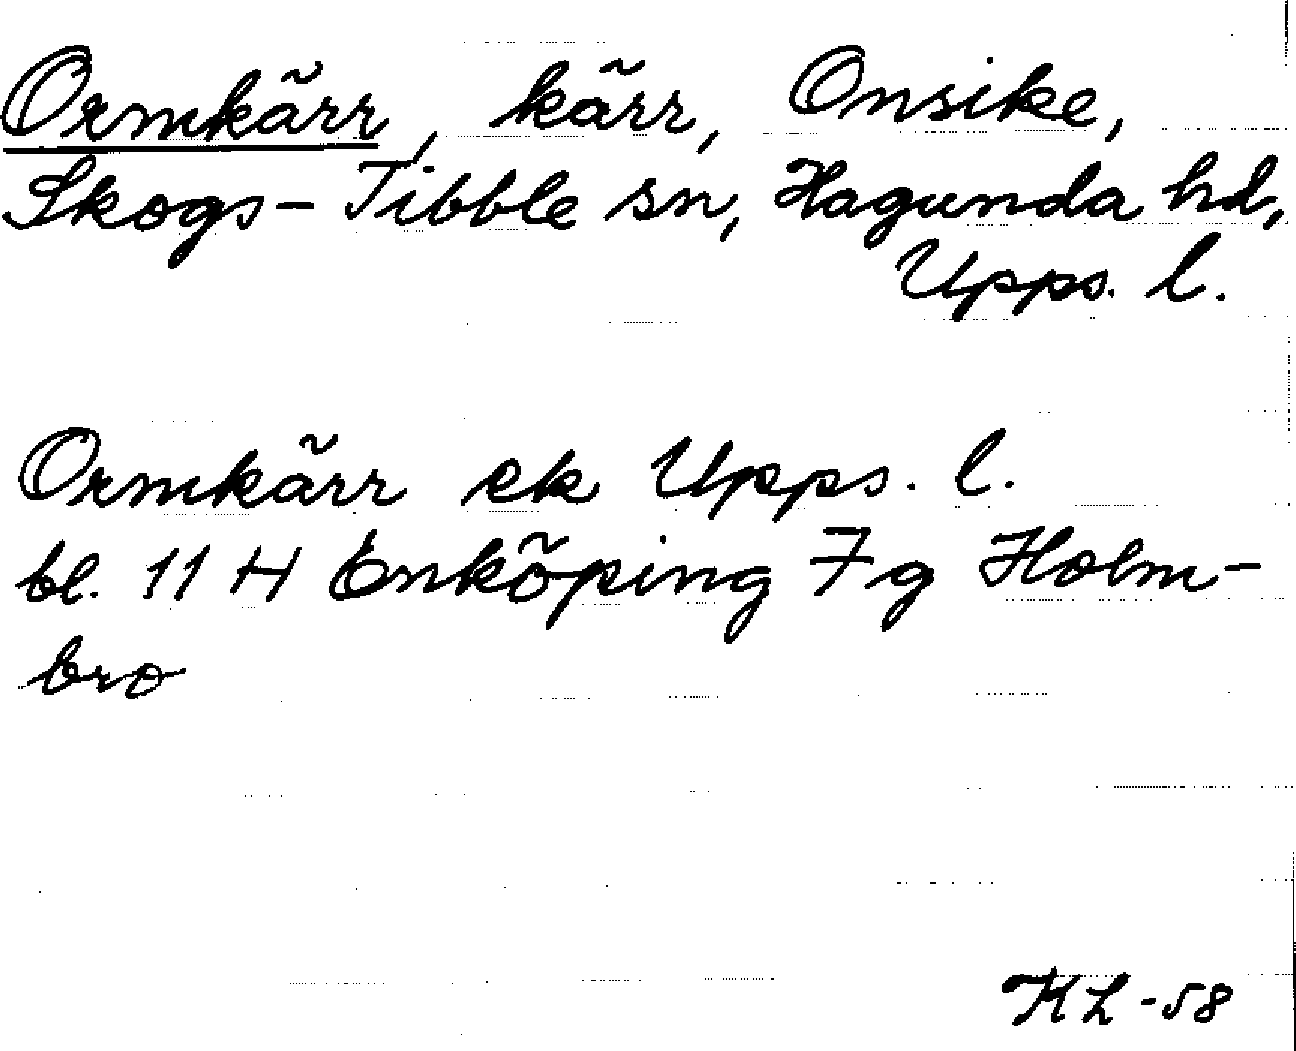 Ormkärr, kärr, Onsike,
Skogs-Tibble sn, Hagunda hd,
Upps. l.
Ormkärr ek Upps. l.
bl. 11 H Enköping 7 g Holm-
bro
KL-58